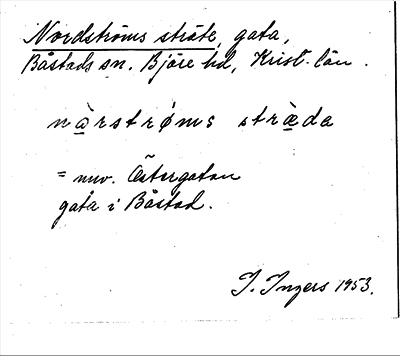 Nordströms sträte, gata,
Båstads sn. Bjäre hd, Krist. län.
nàrstrøms stræ̀da
= nuv. Östergatan
gata i Båstad.
I. Ingers 1953.